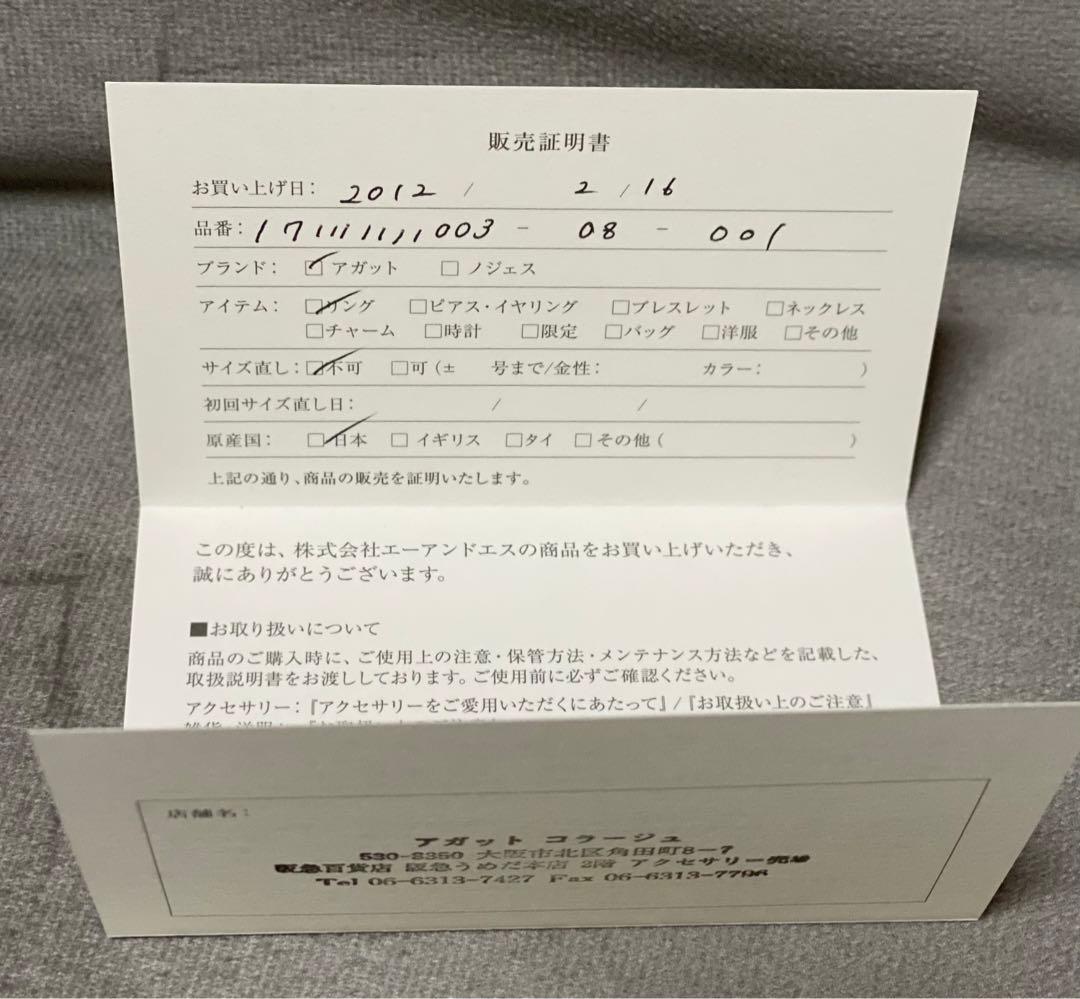 販売証明書
お買い上げ日： 2012 / 2 / 16
品番： 003 - 08 - 001
ブランド： ☑ アガット □ ノジェス
アイテム： ☑リング □ピアス・イヤリング □ブレスレット □ネックレス
□チャーム □時計 □限定 □バッグ □洋服 □その他
サイズ直し：☑不可 □可（± 号まで/金性： カラー： ）
初回サイズ直し日： / /
原産国： ☑日本 □ イギリス □タイ □その他（ ）
上記の通り、商品の販売を証明いたします。
この度は、株式会社エーアンドエスの商品をお買い上げいただき、
誠にありがとうございます。
■お取り扱いについて
商品のご購入時に、ご使用上の注意・保管方法・メンテナンス方法などを記載した、
取扱説明書をお渡ししております。ご使用前に必ずご確認ください。
アクセサリー：『アクセサリーをご愛用いただくにあたって』/『お取扱い上のご注意』
店舗名：
アガット コラージュ
530-8350 大阪市北区角田町8-7
阪急百貨店 阪急うめだ本店 2階 アクセサリー売場
Tel 06-6313-7427 Fax 06-6313-7796